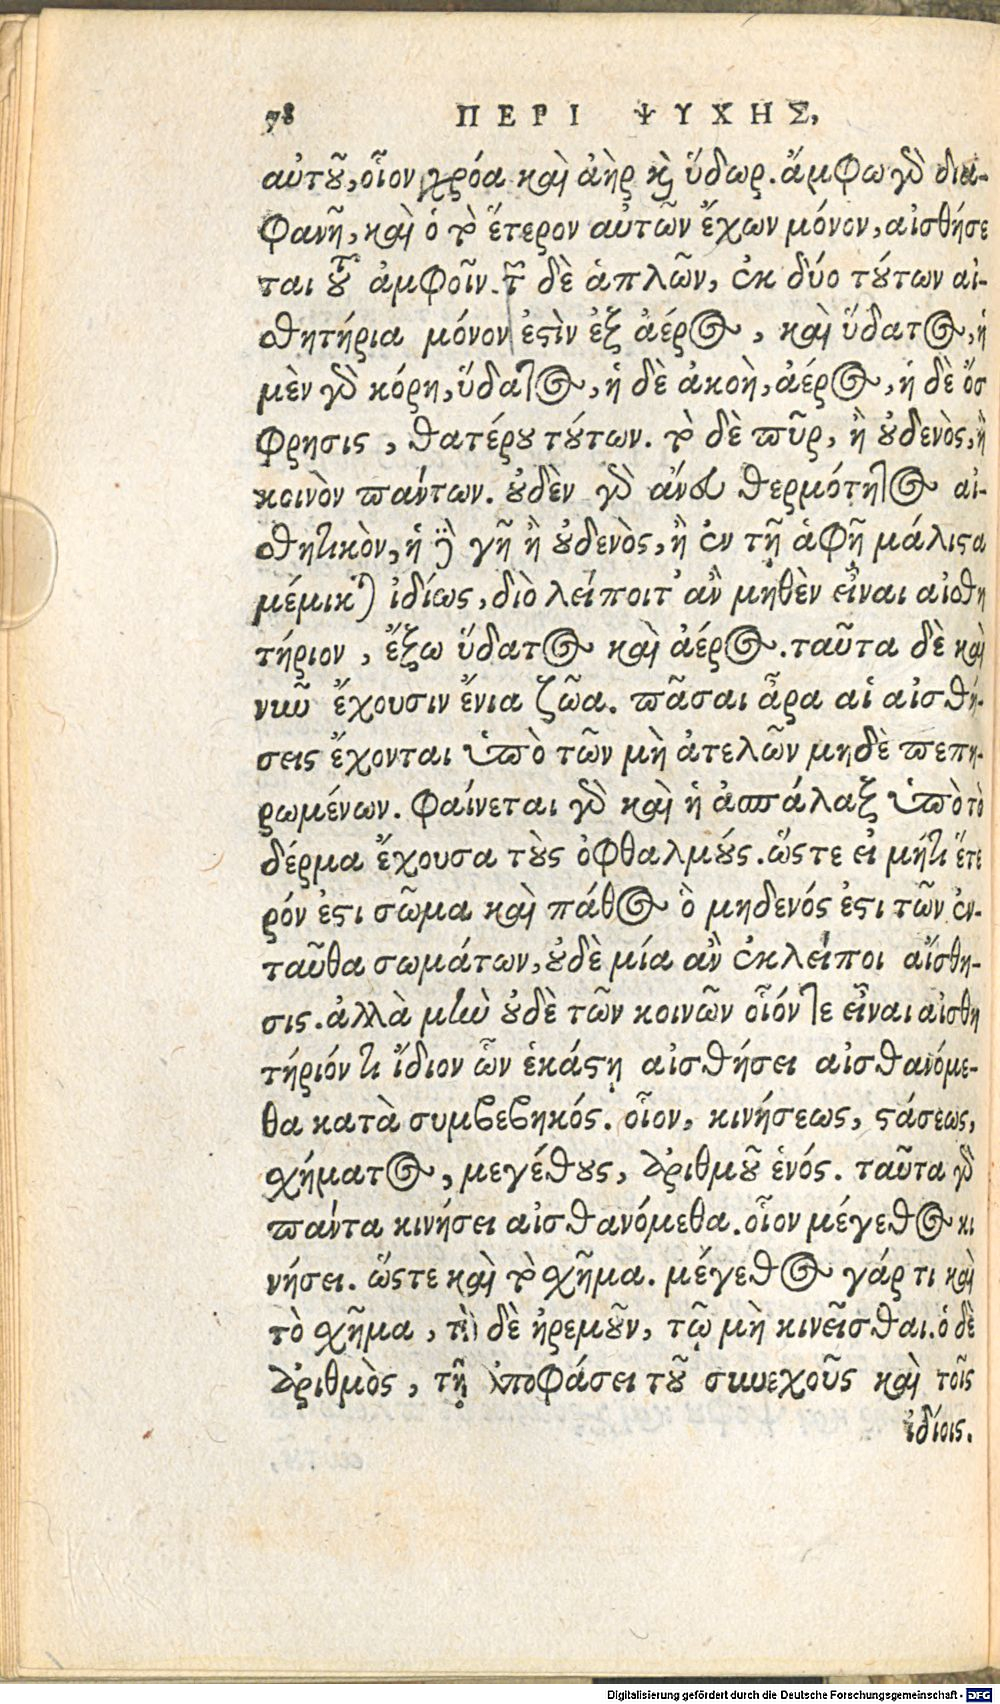 78 ΠΕΡΙ ΨΥΧΗΣ,
αὐτοῦ, οἷον χρόα καὶ ἀὴρ καὶ ὕδωρ. ἄμφω γὸ δια-
φανῆ, καὶ ὁ τὸ ἕτερον αὐτῶν ἔχων μόνον, αἰσθήσε
ται τοῦ ἀμφοῖν. τῶν δὲ ἁπλῶν, ἐκ δύο τούτων αἰ-
σθητήρια μόνον ἐστὶν ἐξ ἀέρος, καὶ ὕδατος, ἡ
μὲν γὸ κόρη, ὕδατος, ἡ δὲ ἀκοὴ, ἀέρος, ἡ δὲ ὄσ
φρησις, θατέρου τούτων. τὸ δὲ πῦρ, ἢ οὐδενὸς, ἢ
κοινὸν πάντων. οὐδὲν γὸ ἄνευ θερμότητος αἰ-
σθητικὸν, ἡ δὲ γῆ ἢ οὐδενὸς, ἢ ἐν τῇ ἁφῇ μάλιστα
μέμικται ἰδίως, διὸ λείποιτ' ἂν μηθὲν εἶναι αἰσθη
τήριον, ἔξω ὕδατος καὶ ἀέρος. ταῦτα δὲ καὶ
νῦν ἔχουσιν ἔνια ζῶα. πᾶσαι ἆρα αἱ αἰσθή-
σεις ἔχονται ὑπὸ τῶν μὴ ἀτελῶν μηδὲ πεπη-
ρωμένων. φαίνεται γὸ καὶ ἡ ἀσπάλαξ ὑπὸ τὸ
δέρμα ἔχουσα τοὺς ὀφθαλμούς. ὥστε εἰ μήτι ἕτε
ρόν ἐστι σῶμα καὶ πάθος ὃ μηδενός ἐστι τῶν ἐν-
ταῦθα σωμάτων, οὐδὲ μία ἂν ἐκλείποι αἴσθη-
σις. ἀλλὰ μὴν οὐδὲ τῶν κοινῶν οἷόν τε εἶναι αἰσθη
τήριόν τι ἴδιον ὧν ἑκάστη αἰσθήσει αἰσθανόμε-
θα κατὰ συμβεβηκός. οἷον, κινήσεως, στάσεως,
σχήματος, μεγέθους, ἀριθμοῦ ἑνός. ταῦτα γὸ
πάντα κινήσει αἰσθανόμεθα. οἷον μέγεθος κι
νήσει. ὥστε καὶ τὸ σχῆμα. μέγεθος γάρ τι καὶ
τὸ σχῆμα, τὸ δὲ ἠρεμοῦν, τῷ μὴ κινεῖσθαι. ὁ δὲ
ἀριθμὸς, τῇ ἀποφάσει τοῦ συνεχοῦς καὶ τοῖς
ἰδίοις.
Digitalisierung gefördert durch die Deutsche Forschungsgemeinschaft - DFG